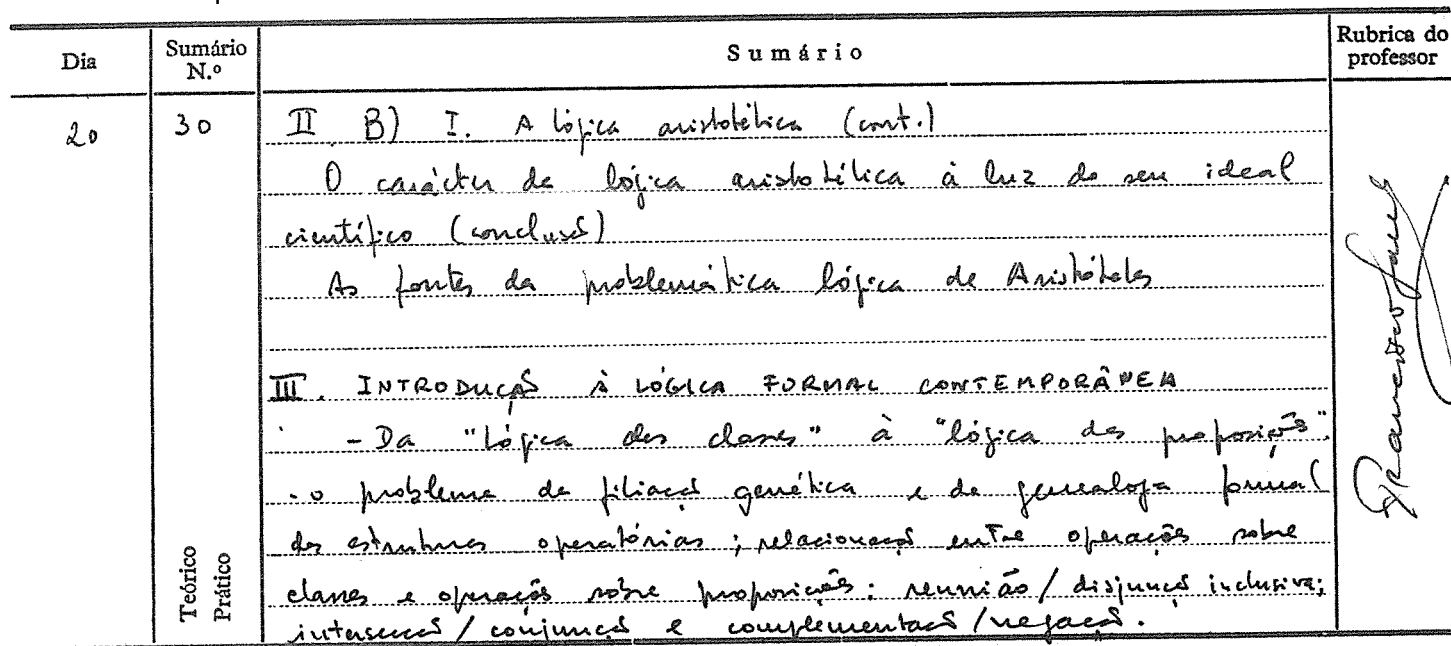 Dia
Sumário N.º
Sumário
Rubrica do professor
20
30
II B) I. A lógica aristotélica (cont.)
O carácter da lógica aristotélica à luz do seu ideal
científico (conclusão)
As fontes da problemática lógica de Aristóteles
III. INTRODUÇÃO À LÓGICA FORMAL CONTEMPORÂNEA
- Da "lógica das classes" à "lógica das proposições".
- o problema da filiação genética e da genealogia formal
das estruturas operatórias; relacionação entre operações sobre
classes e operações sobre proposições: reunião / disjunção inclusiva;
intersecção / conjunção e complementação / negação.
Teórico
Prático
Francisco